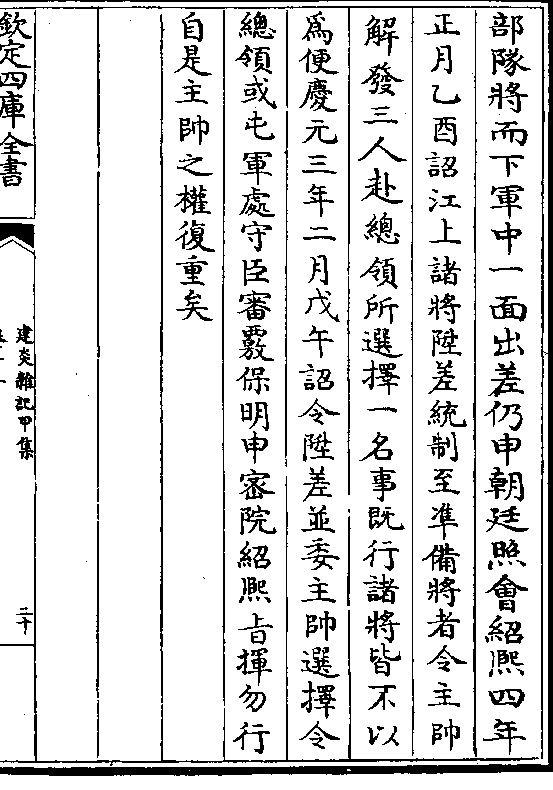 部隊將而下軍中一面出差仍申朝廷照會紹熈四年
正月乙酉詔江上諸將陞差統制至準備將者令主帥
解發三人赴總領所選擇一名事既行諸將皆不以
爲便慶元三年二月戊午詔令陞差並委主帥選擇令
總領或屯軍處守臣審覈保明申密院紹熈㫖揮勿行
自是主帥之權復重矣
欽定四庫全書
建炎雜記甲集
二十